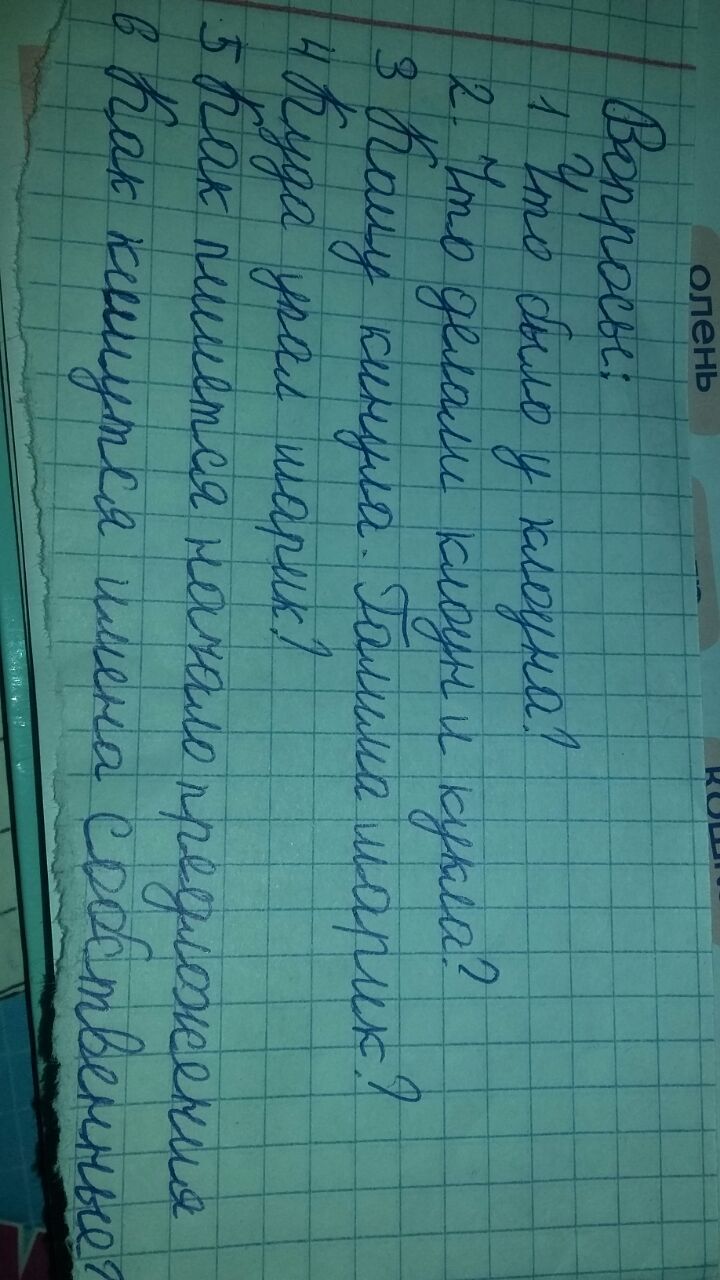 Вопросы:
1 Что было у клоуна?
2. Что делали клоун и кукла?
3 Кому кинула. Галина шарик?
4 Куда упал шарик?
5 Как пишется начало предложения
6 Как пишутся имена собственные?
олень